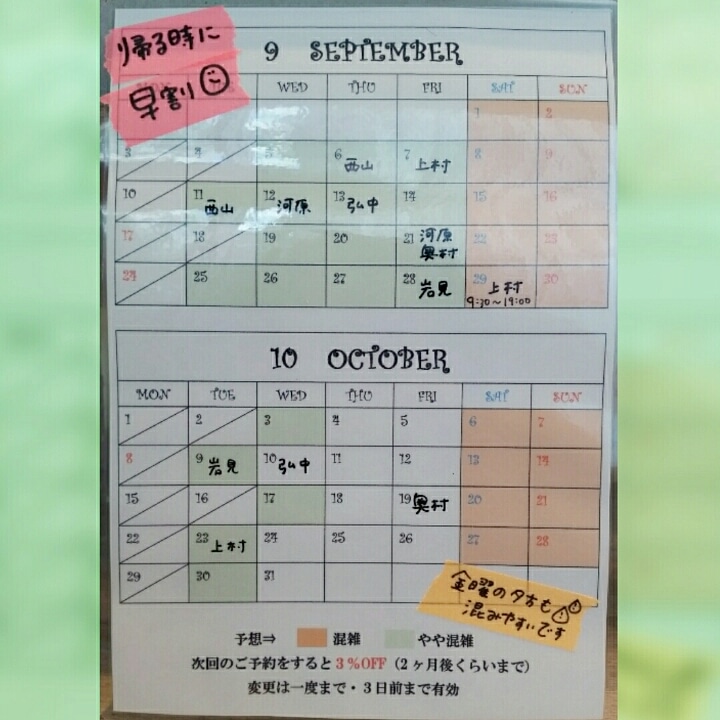 帰る時に
早割
9 SEPTEMBER
WED THU FRI SAT SUN
1 2
3 4 5 6 西山 7 上村 8 9
10 11 西山 12 河原 13 弘中 14 15 16
17 18 19 20 21 河原 奥村 22 23
24 25 26 27 28 岩見 29 上村 9:30~19:00 30
10 OCTOBER
MON TUE WED THU FRI SAT SUN
1 2 3 4 5 6 7
8 9 岩見 10 弘中 11 12 13 14
15 16 17 18 19 奥村 20 21
22 23 上村 24 25 26 27 28
29 30 31
金曜の夕方も
混みやすいです
予想⇒ 混雑 やや混雑
次回のご予約をすると3%OFF(2ヶ月後くらいまで)
変更は一度まで・3日前まで有効